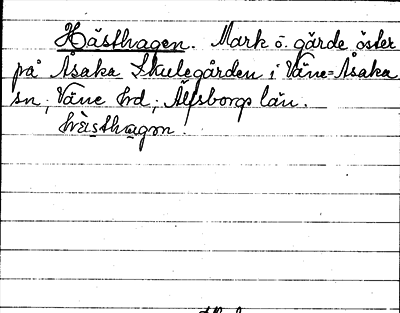 Hästhagen. Mark o. gärde öster
på Åsaka Skulegården i Väne-Åsaka
sn, Väne hd, Älfsborgs län.
hästhagen.